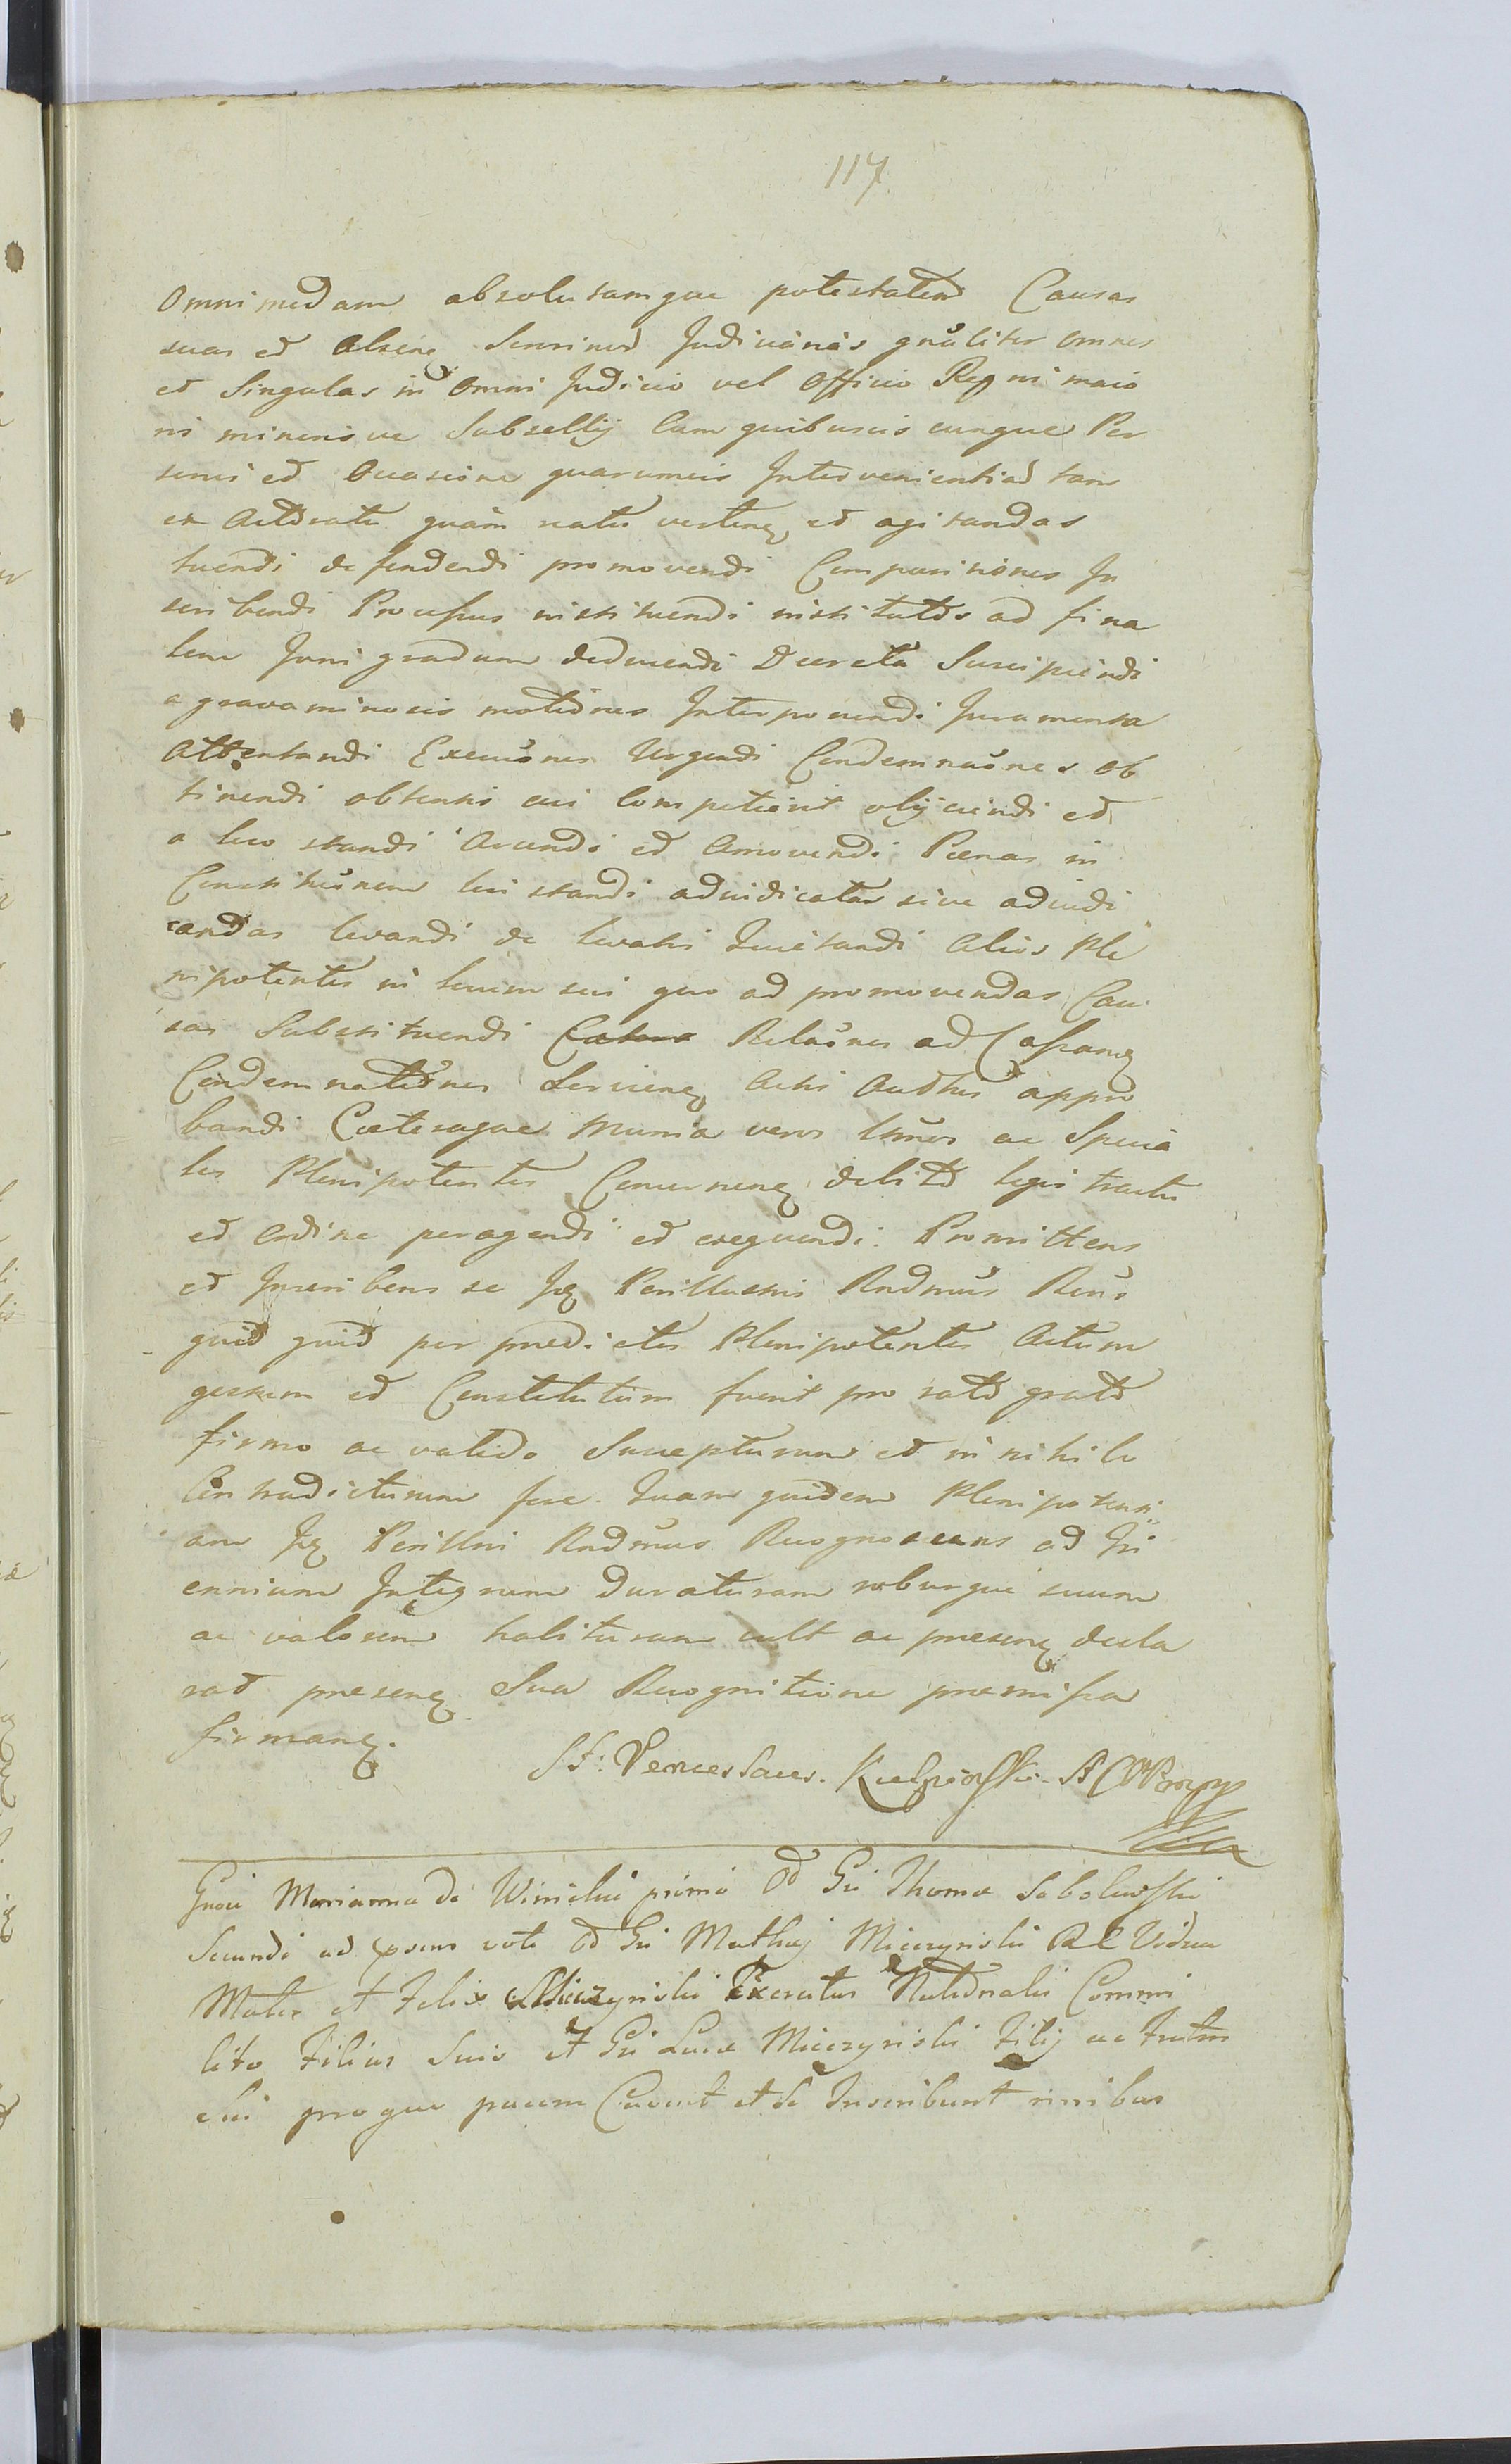 117
Omnimodam absolutamque potestatem Causas
suas et Alienas Serviendo Judiciarias gnāliter omnes
et Singulas in Omni Judicio vel Officio Regni maio
ris minorisve Subsellij Cum quibusvis cunque Per
sonis et Occasione quarumvis Intervenientiad tam
ex Actoratu quàm reatu verten et agitandas
tuendi defendendi promovendi Comparitiones In
scribendi Processus instituendi institutos ad fina
lem Juris gradum deducendi Decreta Suscipiendi
a gravaminosis motiones Interponendi Juramenta
Attentandi Execuōnes Urgendi Condemnaōnes ob
tinendi obtentis cui Competierit obijciendi et
a loco standi Arcendi et Amovendi Pœnas in
Constituōnem loci standi adiudicatas sive adiudi
candas levandi de levatis Quietandi Alios Ple
nipotentes in locum sui quo ad promovendas Cau
sas Substituendi Relaōnes ad Cassan
Condemnationes Servien Actis Authis appro
bandi Cœteraque Munia veros ltmos ac Specia
les Plenipotentes Concernen debito legis tractu
et ordine peragendi et exequendi. Promittens
et Inscribens se Idem Perillustris Rndmus Rens
quid quid per praedictos Plenipotentes Actum
gestum et Constitutum fuerit pro rato grato
firmo ac valido Suscepturum et in nihilo
Contradicturum fore. Quam quidem Plenipotenti
am Idem Perillris Rndmus Recognoscens ad Tri
ennium Integrum Duraturam roburque suum
ac valorem habituram vult ac presen decla
rat presen Sua Recognitione premissa
firman.
St: Venceslaus
Gnosi Marianna de primi Od Gsi Thomæ Sobolewski
Secundi ad psens voti Od Gsi Mathej Miczynski RC Vidua
Mater et Felix Miczynski Exercitus Nationalis Commi
lito Filius Suis et Gsi Lucæ Miczynski Filij ac Fratris
sui proque pacem Cavent et se Inscribunt